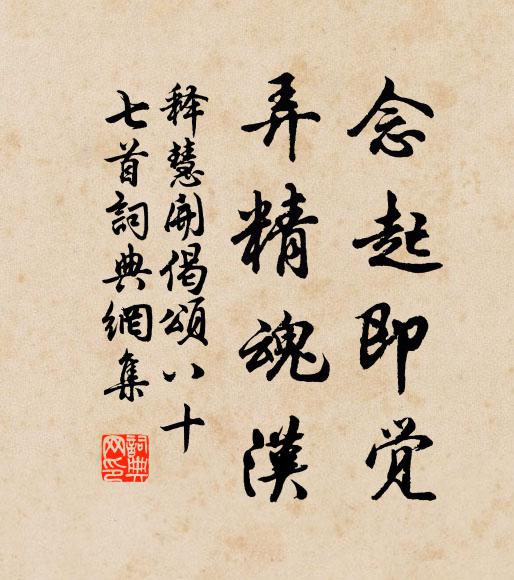 念起即觉
弄精魂漢
释慧開偈頌八十
七首詞典網集
詞典网印